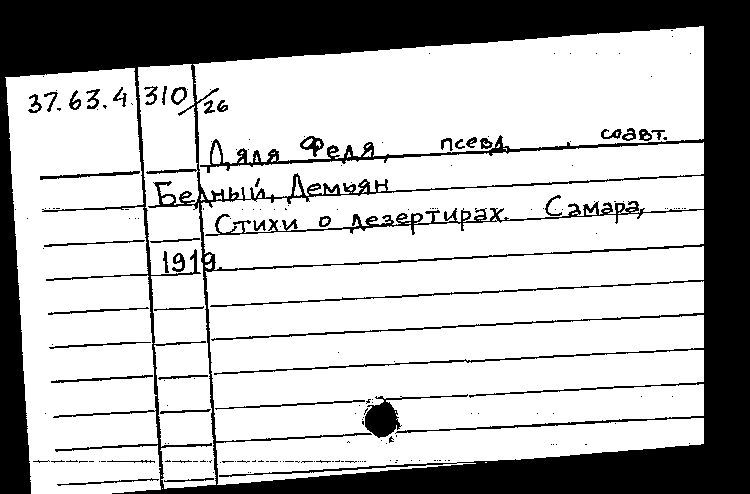 37.63.4 310/26
Дядя Федя, псевд., соавт.
Бедный, Демьян
Стихи о дезертирах. Самара,
1919.